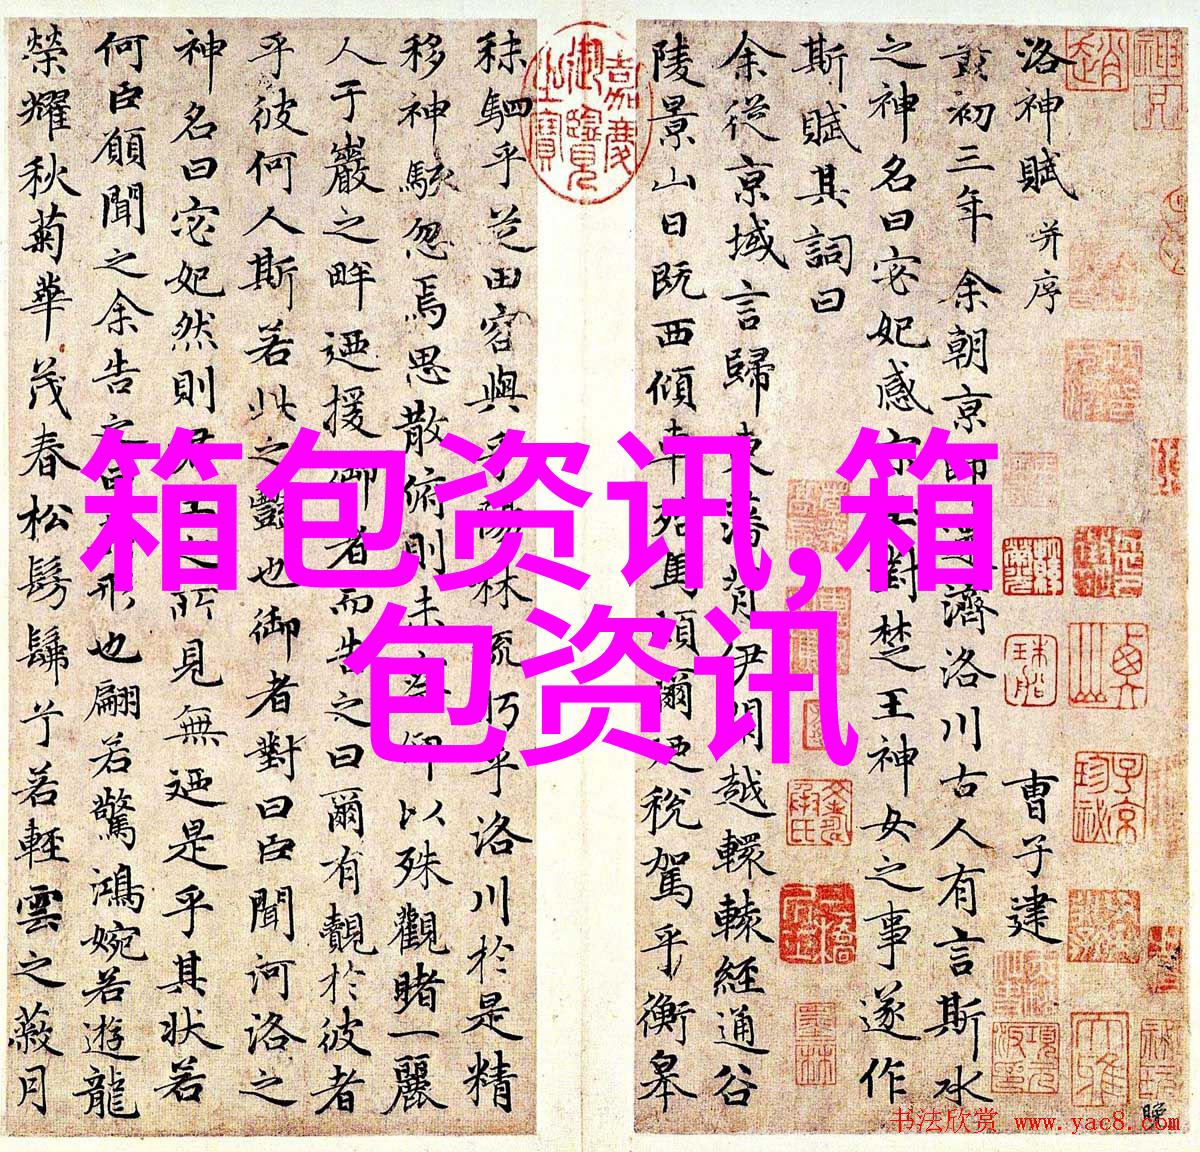 洛神賦 并序 曹子建
初三年余朝京師濟洛川古人有言斯水
之神名曰宓妃感宋玉對楚王神女之事遂作
斯賦其詞曰
余從京域言歸東藩背伊闕越轘轅經通谷
陵景山日既西傾車殆馬煩爾迺稅駕乎衡皋
秣駟乎芝田容與乎陽林流眄乎洛川於是精
移神駭忽焉思散俯則未察仰以殊觀睹一麗
人于巖之畔迺援御者而告之曰爾有覿於彼者
乎彼何人斯若此之豔也御者對曰臣聞河洛之
神名曰宓妃然則君王之所見無迺是乎其狀若
何臣願聞之余告之曰形也翩若驚鴻婉若遊龍
榮耀秋菊華茂春松髣髴兮若輕雲之蔽月
嘉慶御覽之寶
箱包资讯,箱
包资讯
书法欣赏 www.yac8.com